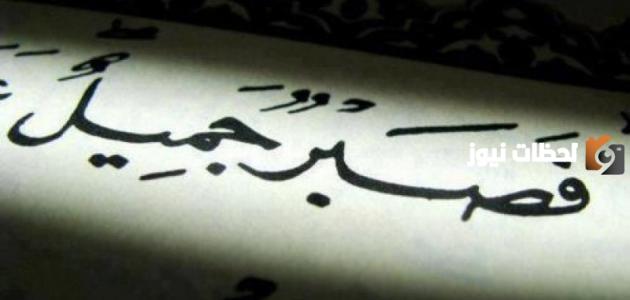 فَصَبْرٌ جَمِيلٌ
لحظات نيوز